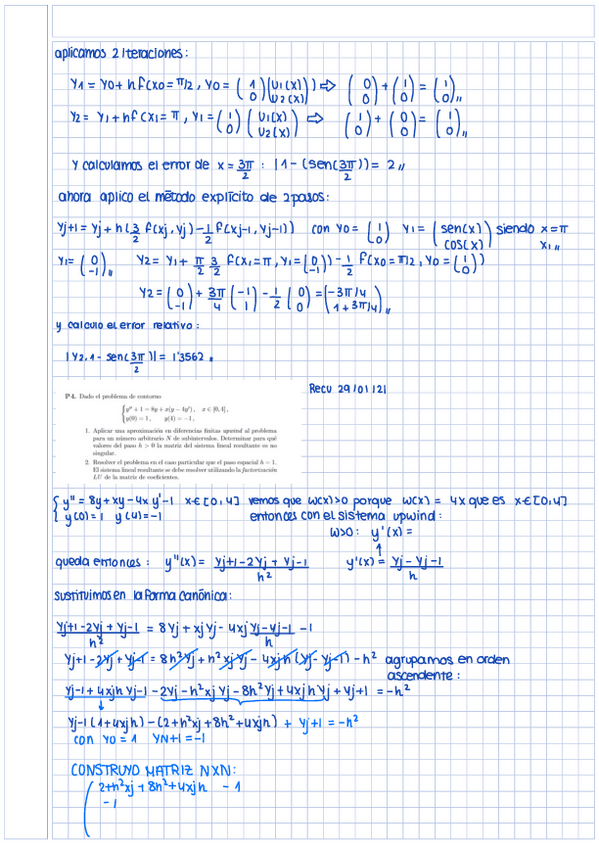 aplicamos 2 iteraciones:
Y1 = Y0 + h f(x0 = π/2, Y0 = (1 0)(U1(x) U2(x))) ⇒ (0 0) + (1 0) = (1 0)
Y2 = Y1 + h f(x1 = π, Y1 = (1 0)(U1(x) U2(x)) ⇒ (1 0) + (0 0) = (1 0)
Y calculamos el error de x = 3π/2 : |1 - (sen(3π/2)) = 2
ahora aplico el método explícito de 2 pasos:
Yj+1 = Yj + h(3/2 f(xj, Yj) - 1/2 f(xj-1, Yj-1)) con Y0 = (1 0) Y1 = (sen(x) cos(x)) siendo x = π
x1
Y1 = (0 -1) Y2 = Y1 + π/2 3/2 f(x1 = π, Y1 = (0 -1)) - 1/2 f(x0 = π/2, Y0 = (1 0))
Y2 = (0 -1) + 3π/4 (-1 1) - 1/2 (0 0) = (-3π/4 1 + 3π/4)
y calculo el error relativo:
|Y2,1 - sen(3π/2)| = 1'3562
Recu 29/01/21
P4. Dado el problema de contorno
{ y'' + 1 = 8y + x(y - 4y'), x ∈ [0, 4],
y(0) = 1, y(4) = -1,
1. Aplicar una aproximación en diferencias finitas upwind al problema
para un número arbitrario N de subintervalos. Determinar para qué
valores del paso h > 0 la matriz del sistema lineal resultante es no
singular.
2. Resolver el problema en el caso particular que el paso espacial h = 1.
El sistema lineal resultante se debe resolver utilizando la factorización
LU de la matriz de coeficientes.
{ y'' = 8y + xy - 4x y' - 1 x ∈ [0, 4] vemos que w(x) > 0 porque w(x) = 4x que es x ∈ [0, 4]
y(0) = 1 y(4) = -1 entonces con el sistema upwind:
w>0: y'(x) =
↑
queda entonces: y''(x) = Yj+1 - 2Yj + Yj-1 / h² y'(x) = Yj - Yj-1 / h
sustituimos en la forma canónica:
Yj+1 - 2Yj + Yj-1 / h² = 8Yj + xjYj - 4xj Yj - Yj-1 / h - 1
Yj+1 - 2Yj + Yj-1 = 8h²Yj + h²xjYj - 4xjh (Yj - Yj-1) - h² agrupamos en orden
ascendente:
Yj-1 + 4xjh Yj-1 - 2Yj - h²xj Yj - 8h²Yj + 4xjh Yj + Yj+1 = -h²
Yj-1 (1 + 4xjh) - (2 + h²xj + 8h² + 4xjh) + Yj+1 = -h²
con Y0 = 1 YN+1 = -1
CONSTRUYO MATRIZ NXN:
( 2 + h²xj + 8h² + 4xjh - 1
- 1